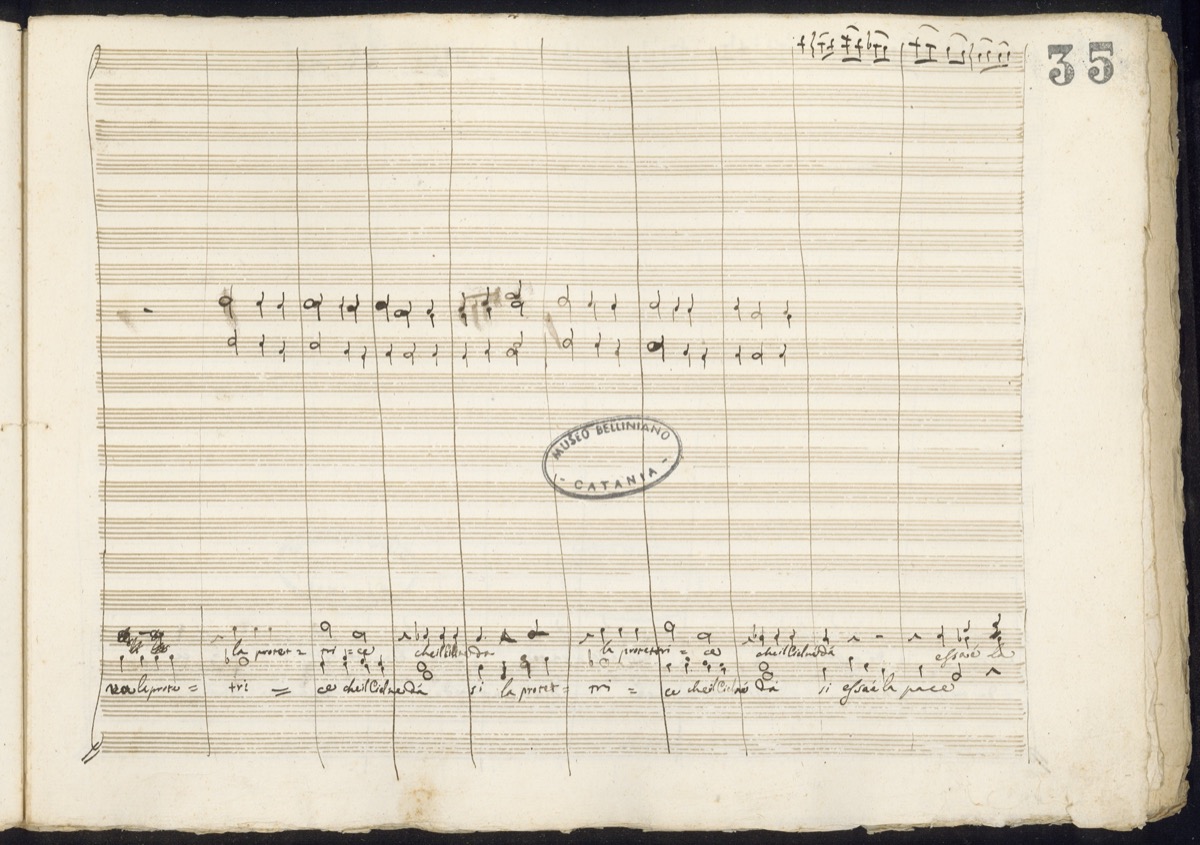 35
MUSEO BELLINIANO
- CATANIA -
la protet = tri = ce che il Ciel ne dà la protettri = ce che il Ciel ne dà essa è
va la prote = tri = ce che il Ciel ne dà si la protet = tri = ce che il Ciel ne dà si essa è la pace